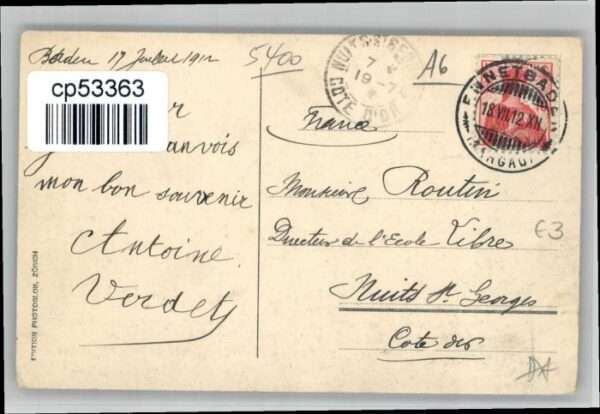 Baden 17 Juillet 1912
5400
A6
cp53363
NUITS-ST-GEORGES
7
19-7
COTE D'OR
ENNETBADEN
18.VII.12.XII
(AARGAU)
envois
mon bon souvenir
Antoine
Verdet
France
Monsieur Routin
Directeur de l'Ecole Libre
Nuits St Georges
Cote d'or
E3
EDITION PHOTOGLOB, ZÜRICH